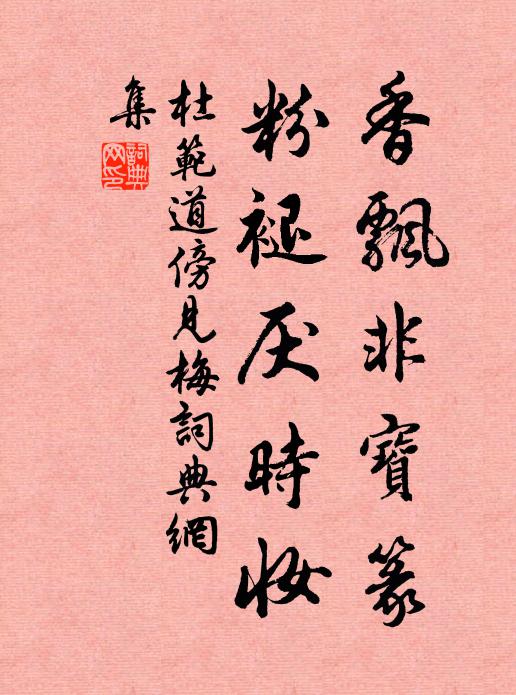 香飄非寶篆
粉褪厌時妝
杜範道傍見梅詞典網
集
詞典網印